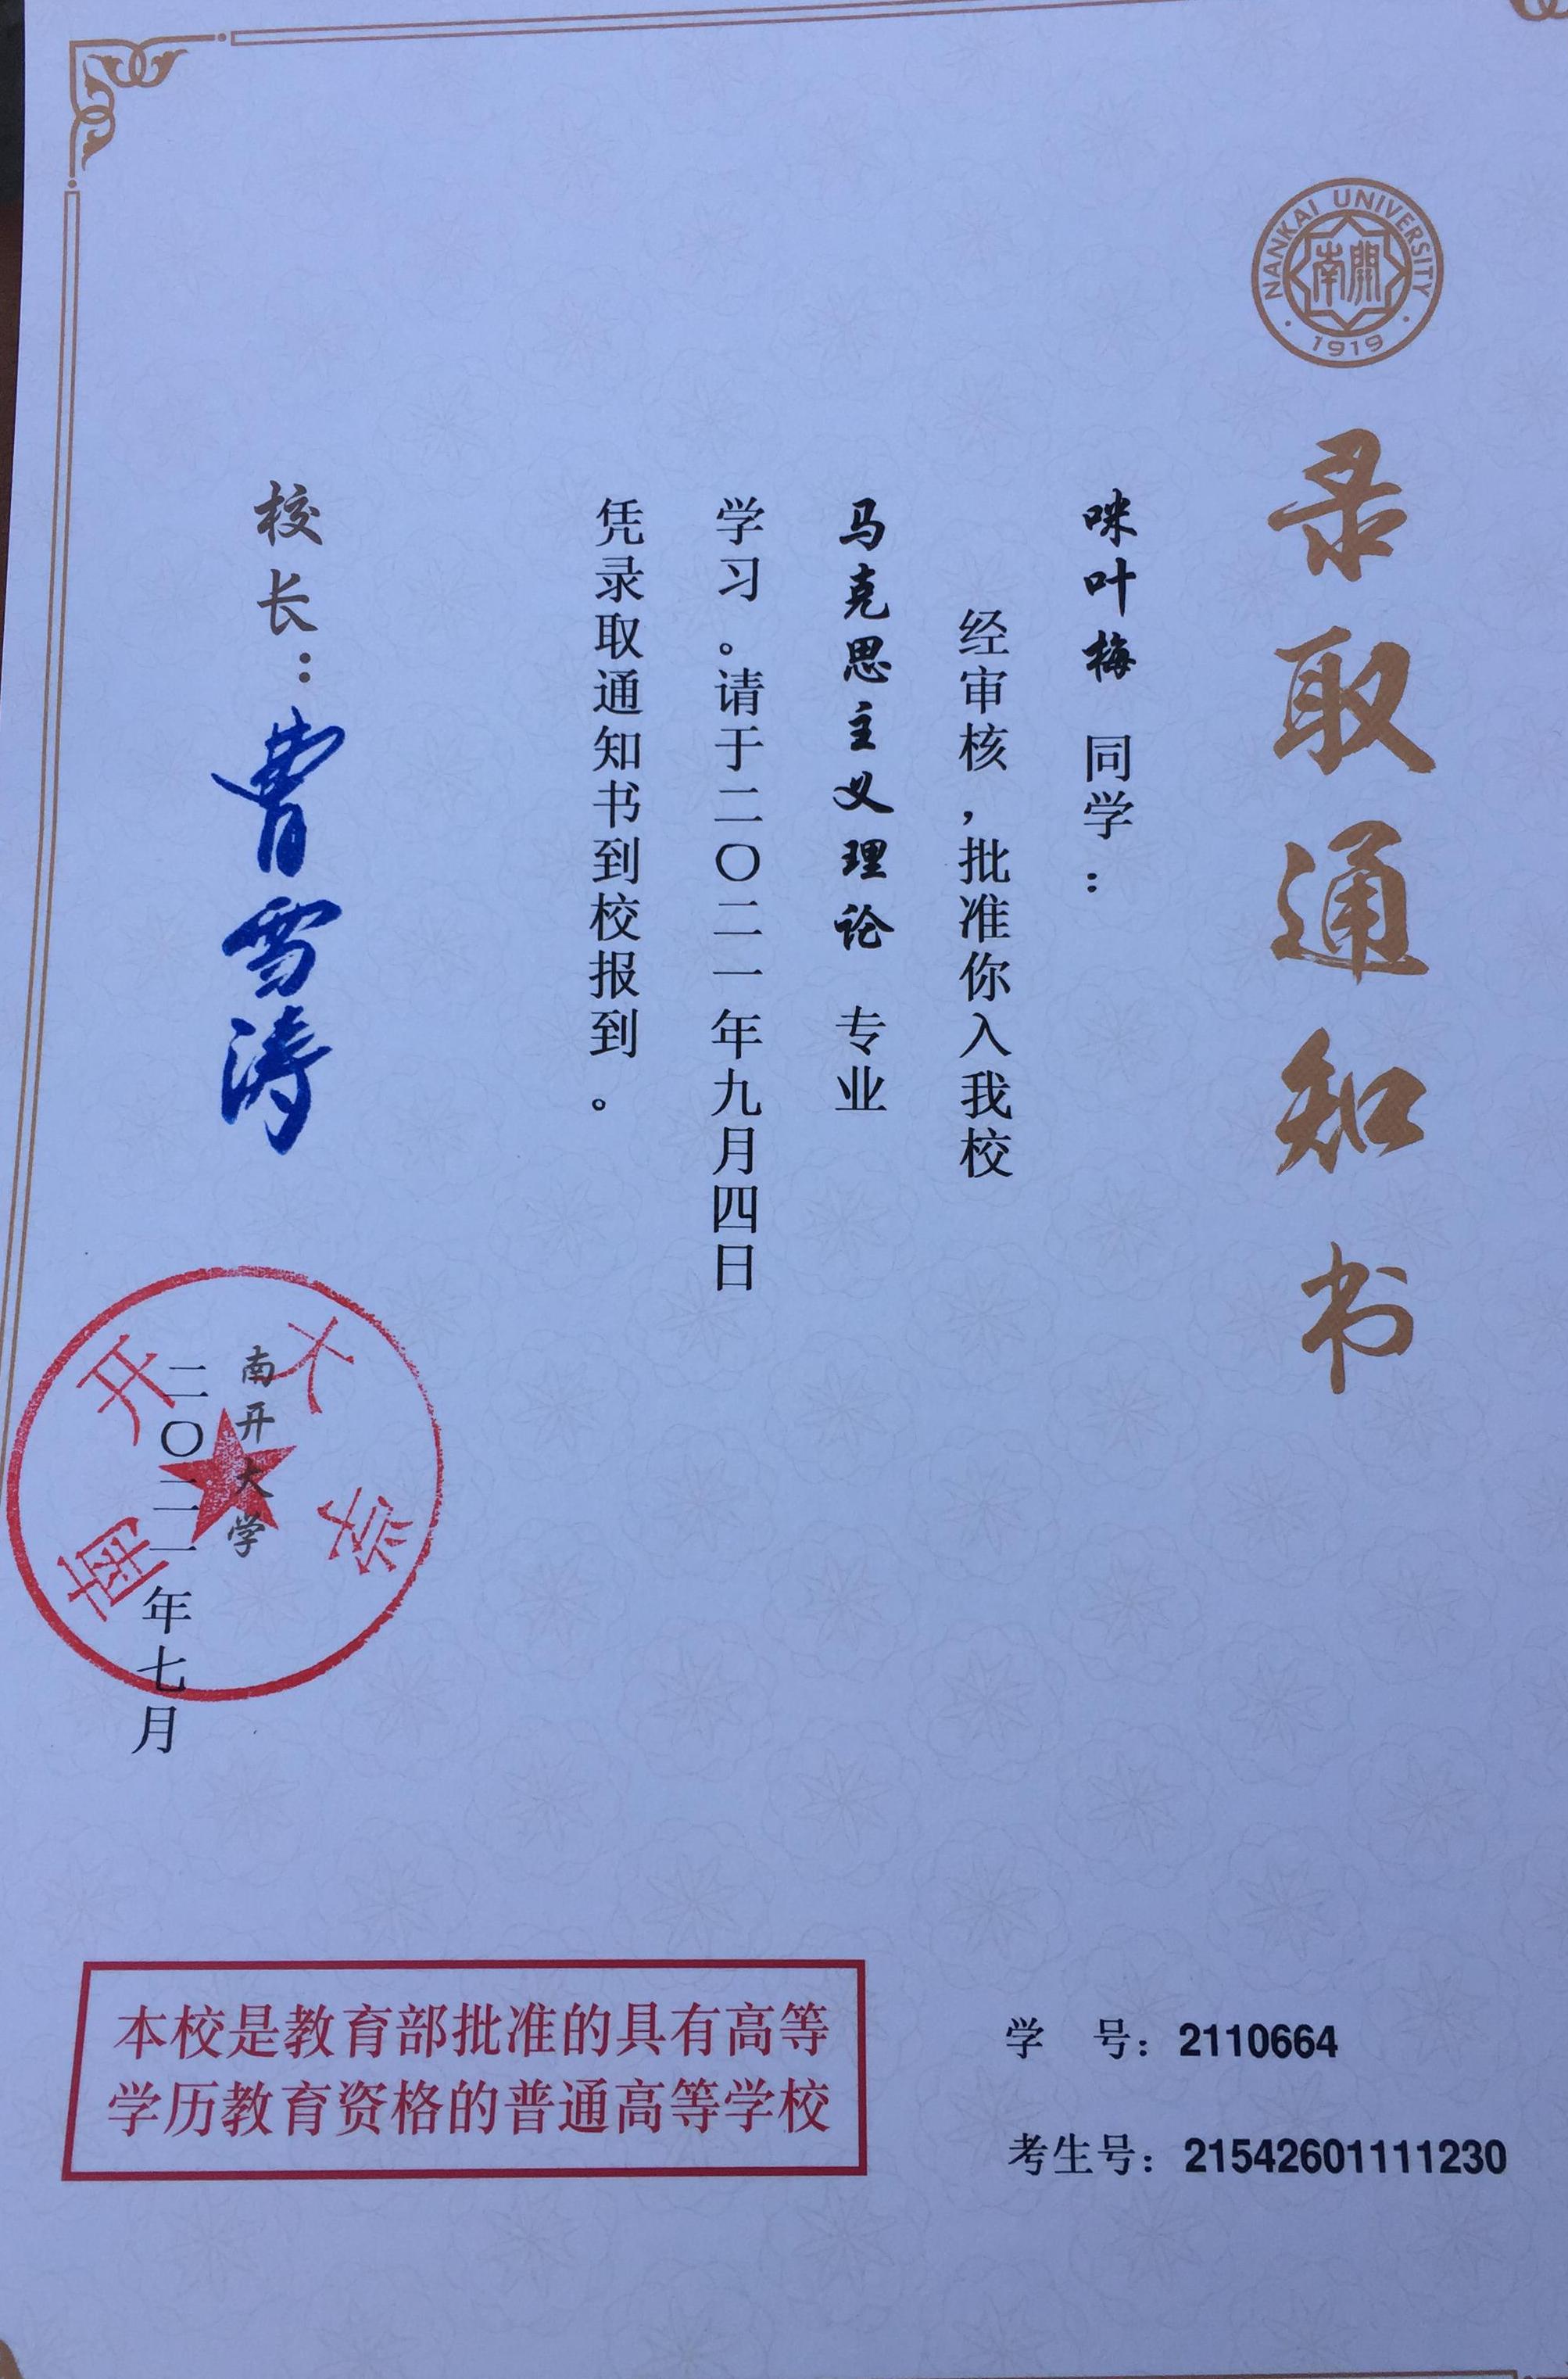 NANKAI UNIVERSITY
南開
1919
录取通知书
咪叶梅 同学：
经审核，批准你入我校
马克思主义理论 专业
学习。请于二〇二一年九月四日
凭录取通知书到校报到。
校长：曹雪涛
南开大学
二〇二一年七月
南开大学
学 号：2110664
考生号：21542601111230
本校是教育部批准的具有高等
学历教育资格的普通高等学校